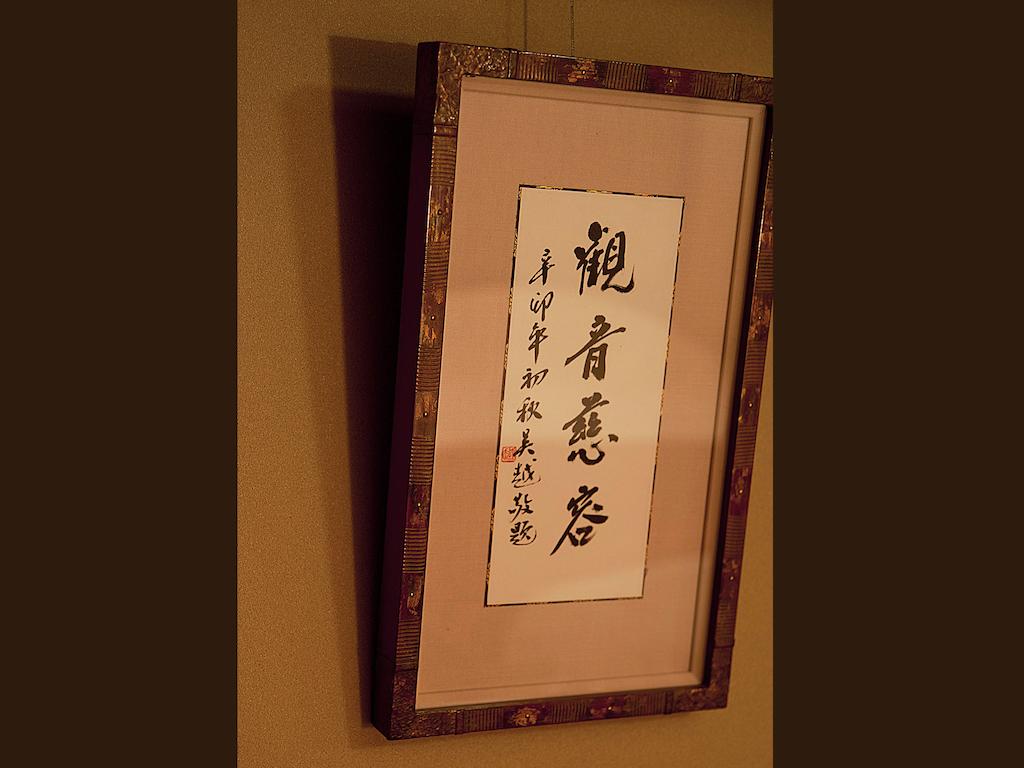 觀音慈容
辛卯年初秋吴越敬题